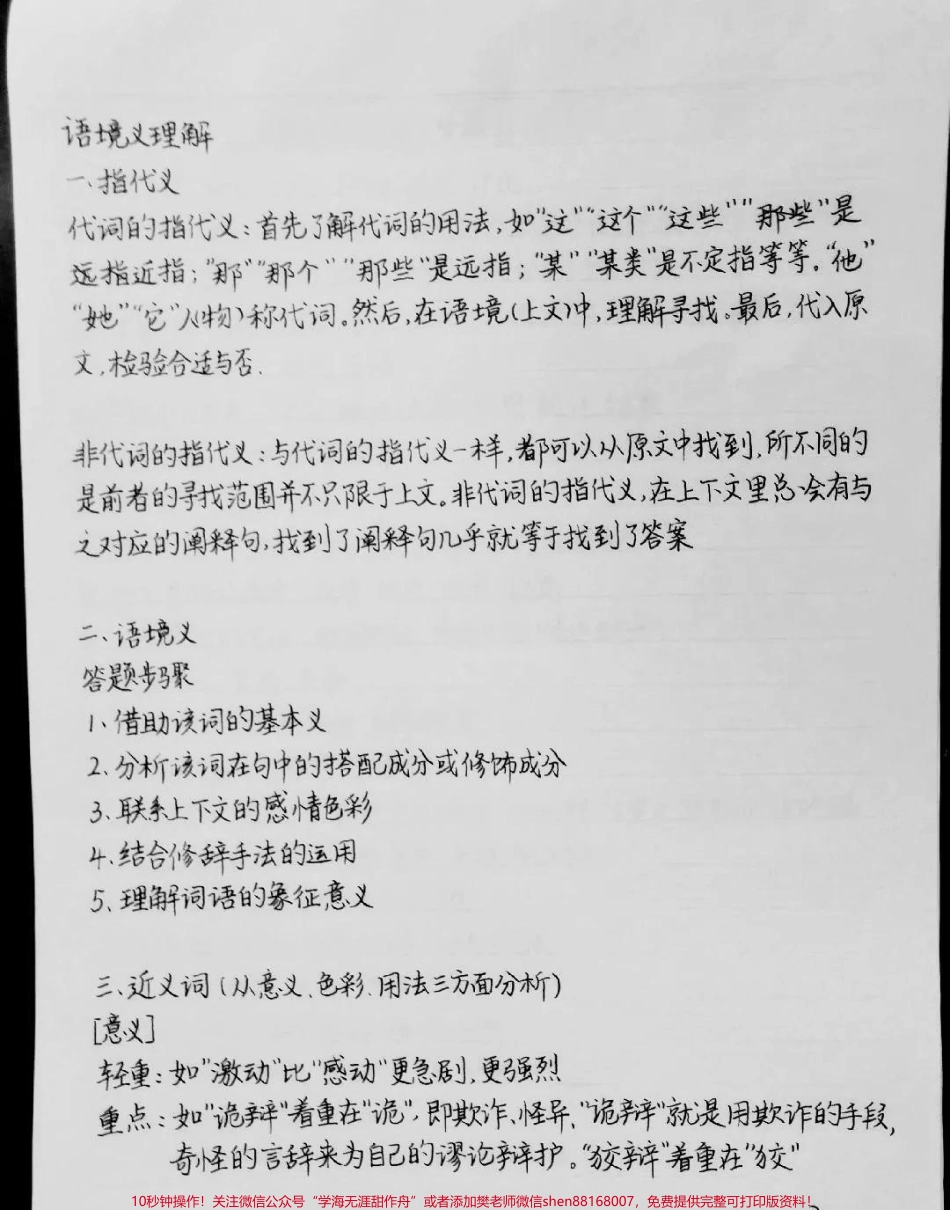 语境义理解
一、指代义
代词的指代义：首先了解代词的用法，如“这”“这个”“这些”“那些”是
远指近指；“那”“那个”“那些”是远指；“某”“某类”是不定指等等。“他”
“她”“它”人(物)称代词。然后，在语境(上文)中，理解寻找。最后，代入原
文，检验合适与否.
非代词的指代义：与代词的指代义一样，都可以从原文中找到，所不同的
是前者的寻找范围并不只限于上文。非代词的指代义，在上下文里总会有与
之对应的阐释句，找到了阐释句几乎就等于找到了答案
二、语境义
答题步骤
1、借助该词的基本义
2、分析该词在句中的搭配成分或修饰成分
3、联系上下文的感情色彩
4、结合修辞手法的运用
5、理解词语的象征意义
三、近义词(从意义、色彩、用法三方面分析)
[意义]
轻重：如“激动”比“感动”更急剧，更强烈
重点：如“诡辩”着重在“诡”，即欺诈、怪异，“诡辩”就是用欺诈的手段，
奇怪的言辞来为自己的谬论辩护。“狡辩”着重在“狡”
10秒钟操作！关注微信公众号“学海无涯甜作舟”或者添加樊老师微信shen88168007，免费提供完整可打印版资料！